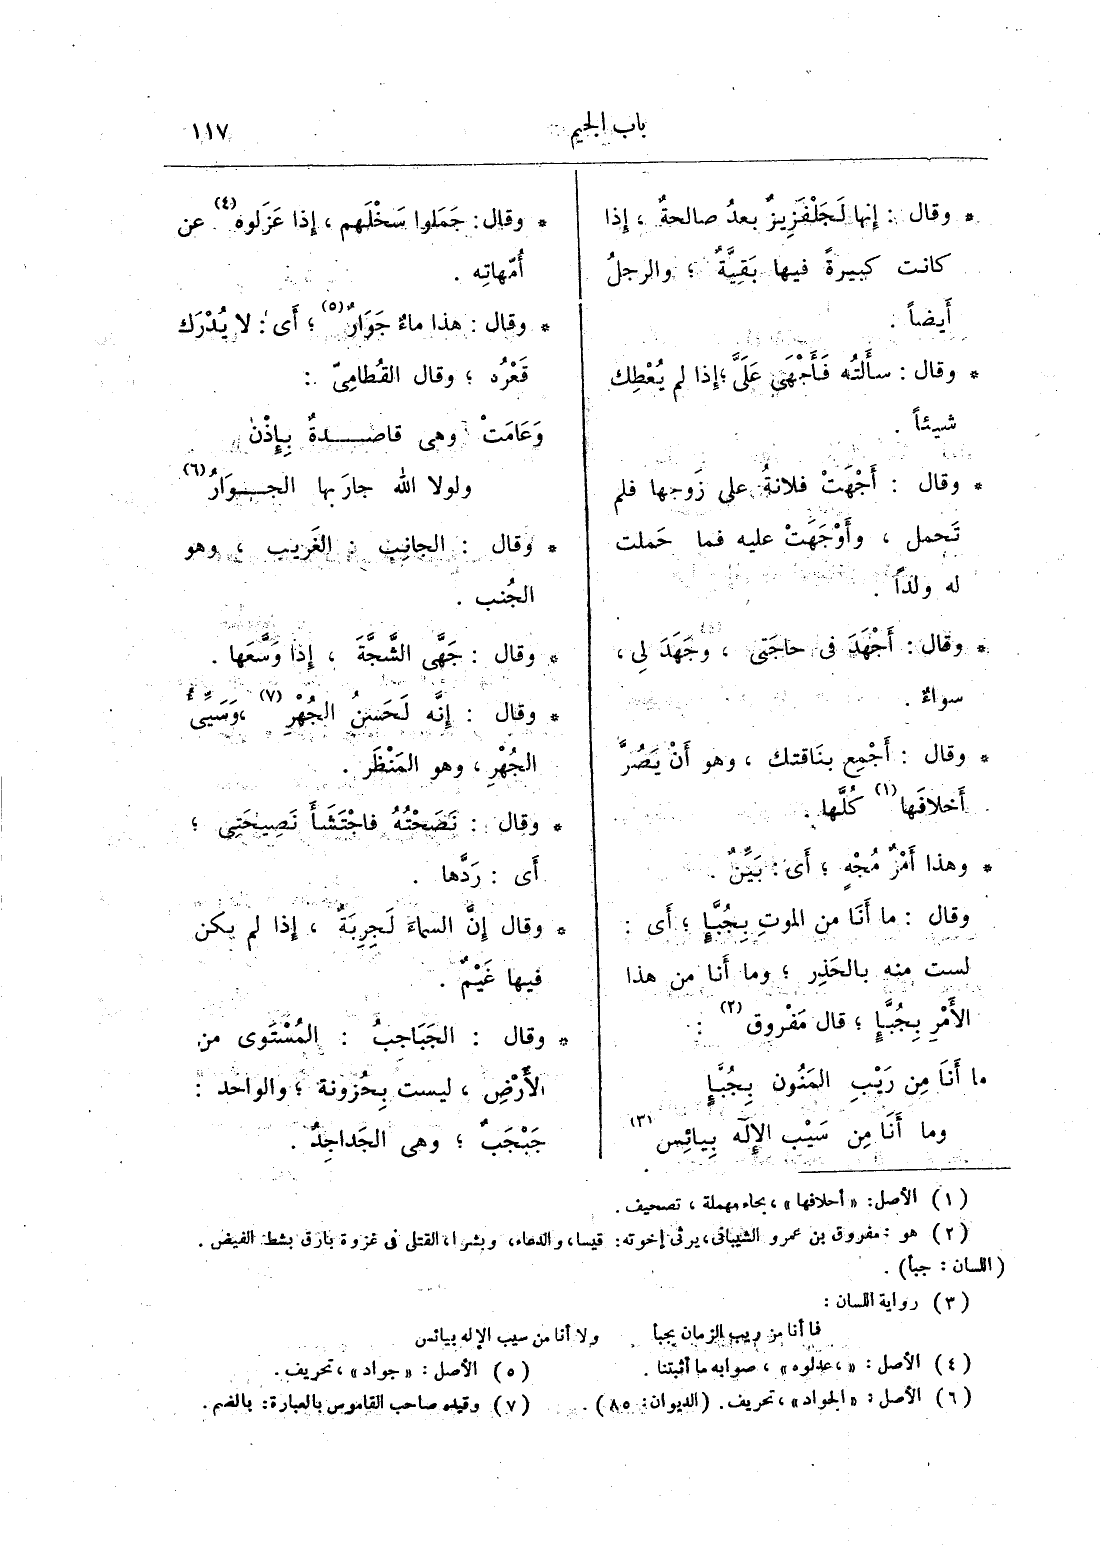 باب الجيم
١١٧
* وقال : إنها لَجَلْفَزِيزٌ بعدُ صالحةٌ ، إذا
كانت كبيرةً فيها بَقِيَّةٌ ؛ والرجلُ
أَيضاً .
* وقال : سأَلتُه فَأَجْهَى عَلَىَّ ؛ إذا لم يُعْطِك
شيئاً .
* وقال : أَجْهَتْ فلانةُ على زَوجها فلم
تَحمل ، وأَوْجَهَتْ عليه فما حَملت
له ولداً .
* وقال : أَجْهَدَ فى حاجَتى ، وجَهَدَ لِى ،
سواءٌ .
* وقال : أَجْمِع بنَاقتك ، وهو أَنْ يَصُرَّ
أَخلافَها (١) كُلَّها .
* وهذا أَمْرٌ مُجْهٍ ؛ أَى : بَيِّنٌ .
وقال : ما أَنَا من الموتِ بِجُبَّإٍ ؛ أَى :
لست منه بالحَذِر ؛ وما أَنا من هذا
الأَمْرِ بِجُبَّإٍ ؛ قال مَفْروق (٢) :
ما أَنَا مِن رَيْبِ المَنُون بِجُبَّإٍ
وما أَنَا مِن سَيْب الإِلَه بِيائِس (٣)
* وقال : جَمَلوا سَخْلَهم ، إذا عَزَلوه (٤) عن
أُمّهاتِه .
* وقال : هذا ماءٌ جَوَارٌ (٥) ؛ أَى : لا يُدْرَك
قَعْرُه ؛ وقال القُطامِىّ :
وَعَامَتْ وهى قاصـــدةٌ بِإِذْن
ولولا الله جارَ بها الجــوَارُ (٦)
* وقال : الجانِب : الغَرِيب ، وهو
الجُنب .
* وقال : جَهَّى الشَّجَّةَ ، إذا وَسَّعَها .
* وقال : إِنَّه لَحَسنُ الجُهْرِ (٧) ، وَسَيِّئُ
الجُهْرِ ، وهو المَنْظَر .
* وقال : نَصَحْتُهُ فاجْتَشَأَ نَصِيحَتِى ؛
أَى : رَدَّها .
* وقال إِنَّ السماءَ لَجِرِبَةٌ ، إذا لم يكن
فيها غَيْمٌ .
* وقال : الجَبَاجِبُ : المُسْتَوى من
الأَرْضِ ، ليست بِحُزونة ؛ والواحد :
جَبْجَبٌ ؛ وهى الجَداجِدُ .
(١) الأصل : « أحلافها » ، بحاء مهملة ، تصحيف .
(٢) هو : مفروق بن عمرو الشيبانى ، يرثى إخوته : قيسا ، والدعاء ، وبشرا ، القتلى فى غزوة بارق بشط الفيض .
(اللسان : جبأ) .
(٣) رواية اللسان :
فما أنا من ريب الزمان بجبأ ولا أنا من سيب الإله بيائس
(٤) الأصل : « ، عدلوه » ، صوابه ما أثبتنا . (٥) الأصل : « جواد » ، تحريف .
(٦) الأصل : « الجواد » ، تحريف . (الديوان : ٨٥) . (٧) وقيده صاحب القاموس بالعبارة : بالضم .